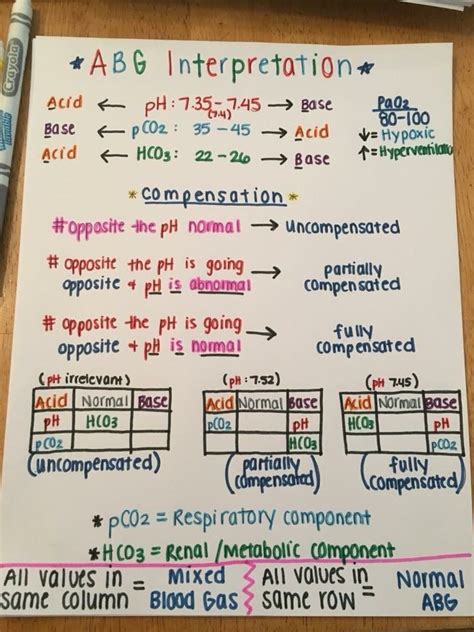 Crayola
*ABG Interpretation*
Acid ← pH: 7.35-7.45 → Base
(7.4)
Base ← pCO2: 35-45 → Acid
Acid ← HCO3: 22-26 → Base
PaO2
80-100
↓= Hypoxic
↑= Hyperventilation
*Compensation*
#opposite the pH normal → uncompensated
# opposite the pH is going
opposite + pH is abnormal → partially
compensated
# opposite the pH is going
opposite + pH is normal → fully
compensated
(pH irrelevant)
Acid Normal Base
pH HCO3
pCO2
(uncompensated)
(pH: 7.52)
Acid Normal Base
pCO2 pH
HCO3
(partially
compensated)
(pH 7.45)
Acid Normal Base
HCO3 pH
pCO2
(fully
compensated)
*pCO2 = Respiratory component
*HCO3 = Renal/Metabolic component
All values in
same column = Mixed
Blood Gas
All values in
same row = Normal
ABG